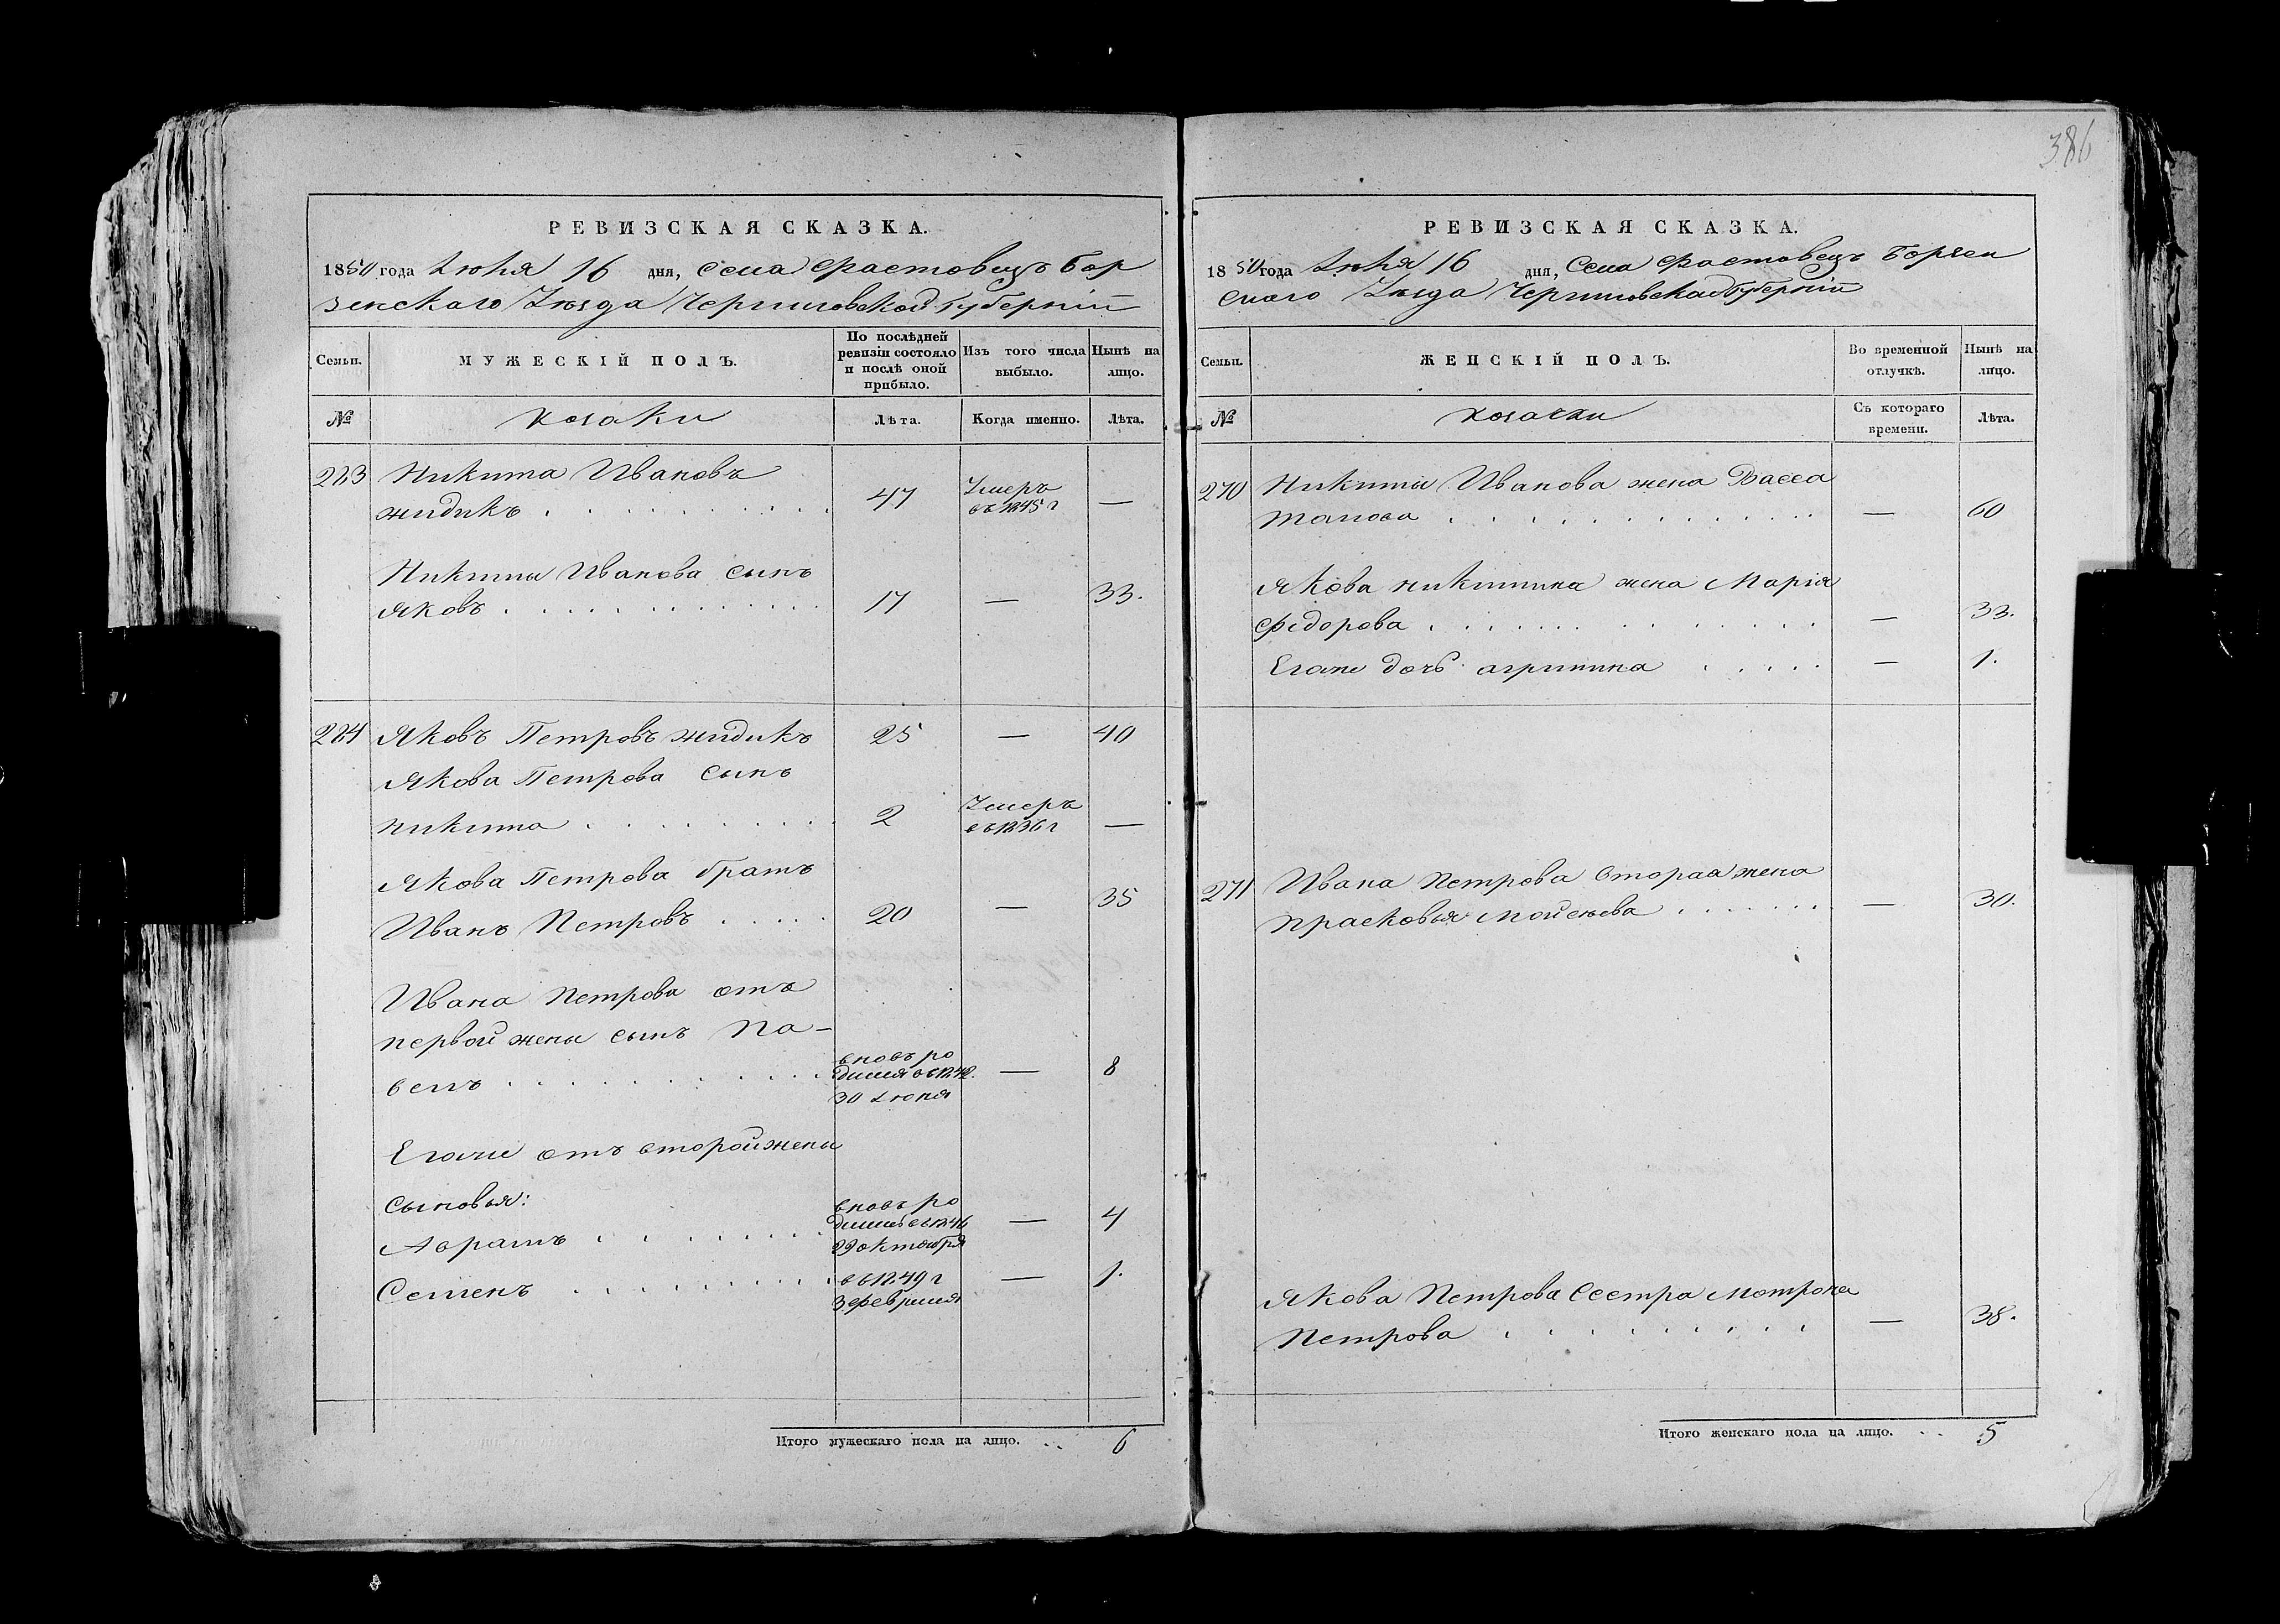 386
РЕВИЗСКАЯ СКАЗКА.
1850 года Июня 16 дня, Села Фастовецъ Бор
зенскаго Уѣзда Черниговской Губернiи
Семьи.
МУЖЕСКІЙ ПОЛЪ.
По послѣдней
ревизіи состояло
и послѣ оной
прибыло.
Изъ того числа
выбыло.
Нынѣ на
лицо.
№
козаки
Лѣта.
Когда именно.
Лѣта.
283 Никита Ивановъ
жидикъ 47 Умеръ
въ 1845 г —
Никиты Иванова сынъ
Яковъ 17 — 33.
284 Яковъ Петровъ жидикъ 25 — 40
Якова Петрова сынъ
Никита 2 Умеръ
въ 1836 г —
Якова Петрова братъ
Иванъ Петровъ 20 — 35
Ивана Петрова отъ
первой жены сынъ Па-
велъ вновь ро
дился въ 1842.
30 Июня — 8
Егоже отъ второй жены
сыновья:
Аврамъ вновь ро
дился въ 1846
29 октября — 4
Семенъ въ 1849 г
3 февраля — 1.
Итого мужескаго пола на лицо. 6
РЕВИЗСКАЯ СКАЗКА.
1850 года Июня 16 дня, Села Фастовецъ Борзен
скаго Уѣзда Черниговской Губернiи
Семьи.
ЖЕНСКІЙ ПОЛЪ.
Во временной
отлучкѣ.
Нынѣ на
лицо.
№
козачки
Съ котораго
времени.
Лѣта.
270 Никиты Иванова жена Васса
— 60
Якова Никитина жена Марія
Федорова — 33.
Егоже дочь агрипина — 1.
271 Ивана Петрова вторая жена
Прасковья Мойсеева — 30.
Якова Петрова Сестра Мотрона
Петрова — 38.
Итого женскаго пола на лицо. 5